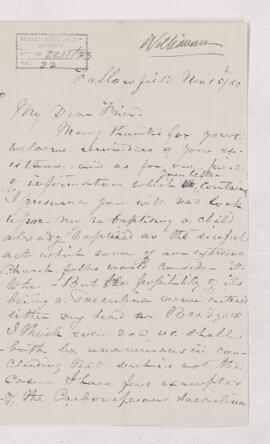 Williamson
22
Fallowfield Nov 15/80
My Dear Friend
Many thanks for your
welcome reminder of your ex-
istence, and as for
information which contains
I presume you will not look
upon my re-baptising a child
already baptised as the sinful
act which some of our extreme
Church folks would consider it
to be. But the possibility of its
being a Sacculina never entered
either my head or Bradys so
I think even now we shall
both be unanimous in con-
cluding that such is not the
Case. I have five examples
of the Carboniferous Sacculina